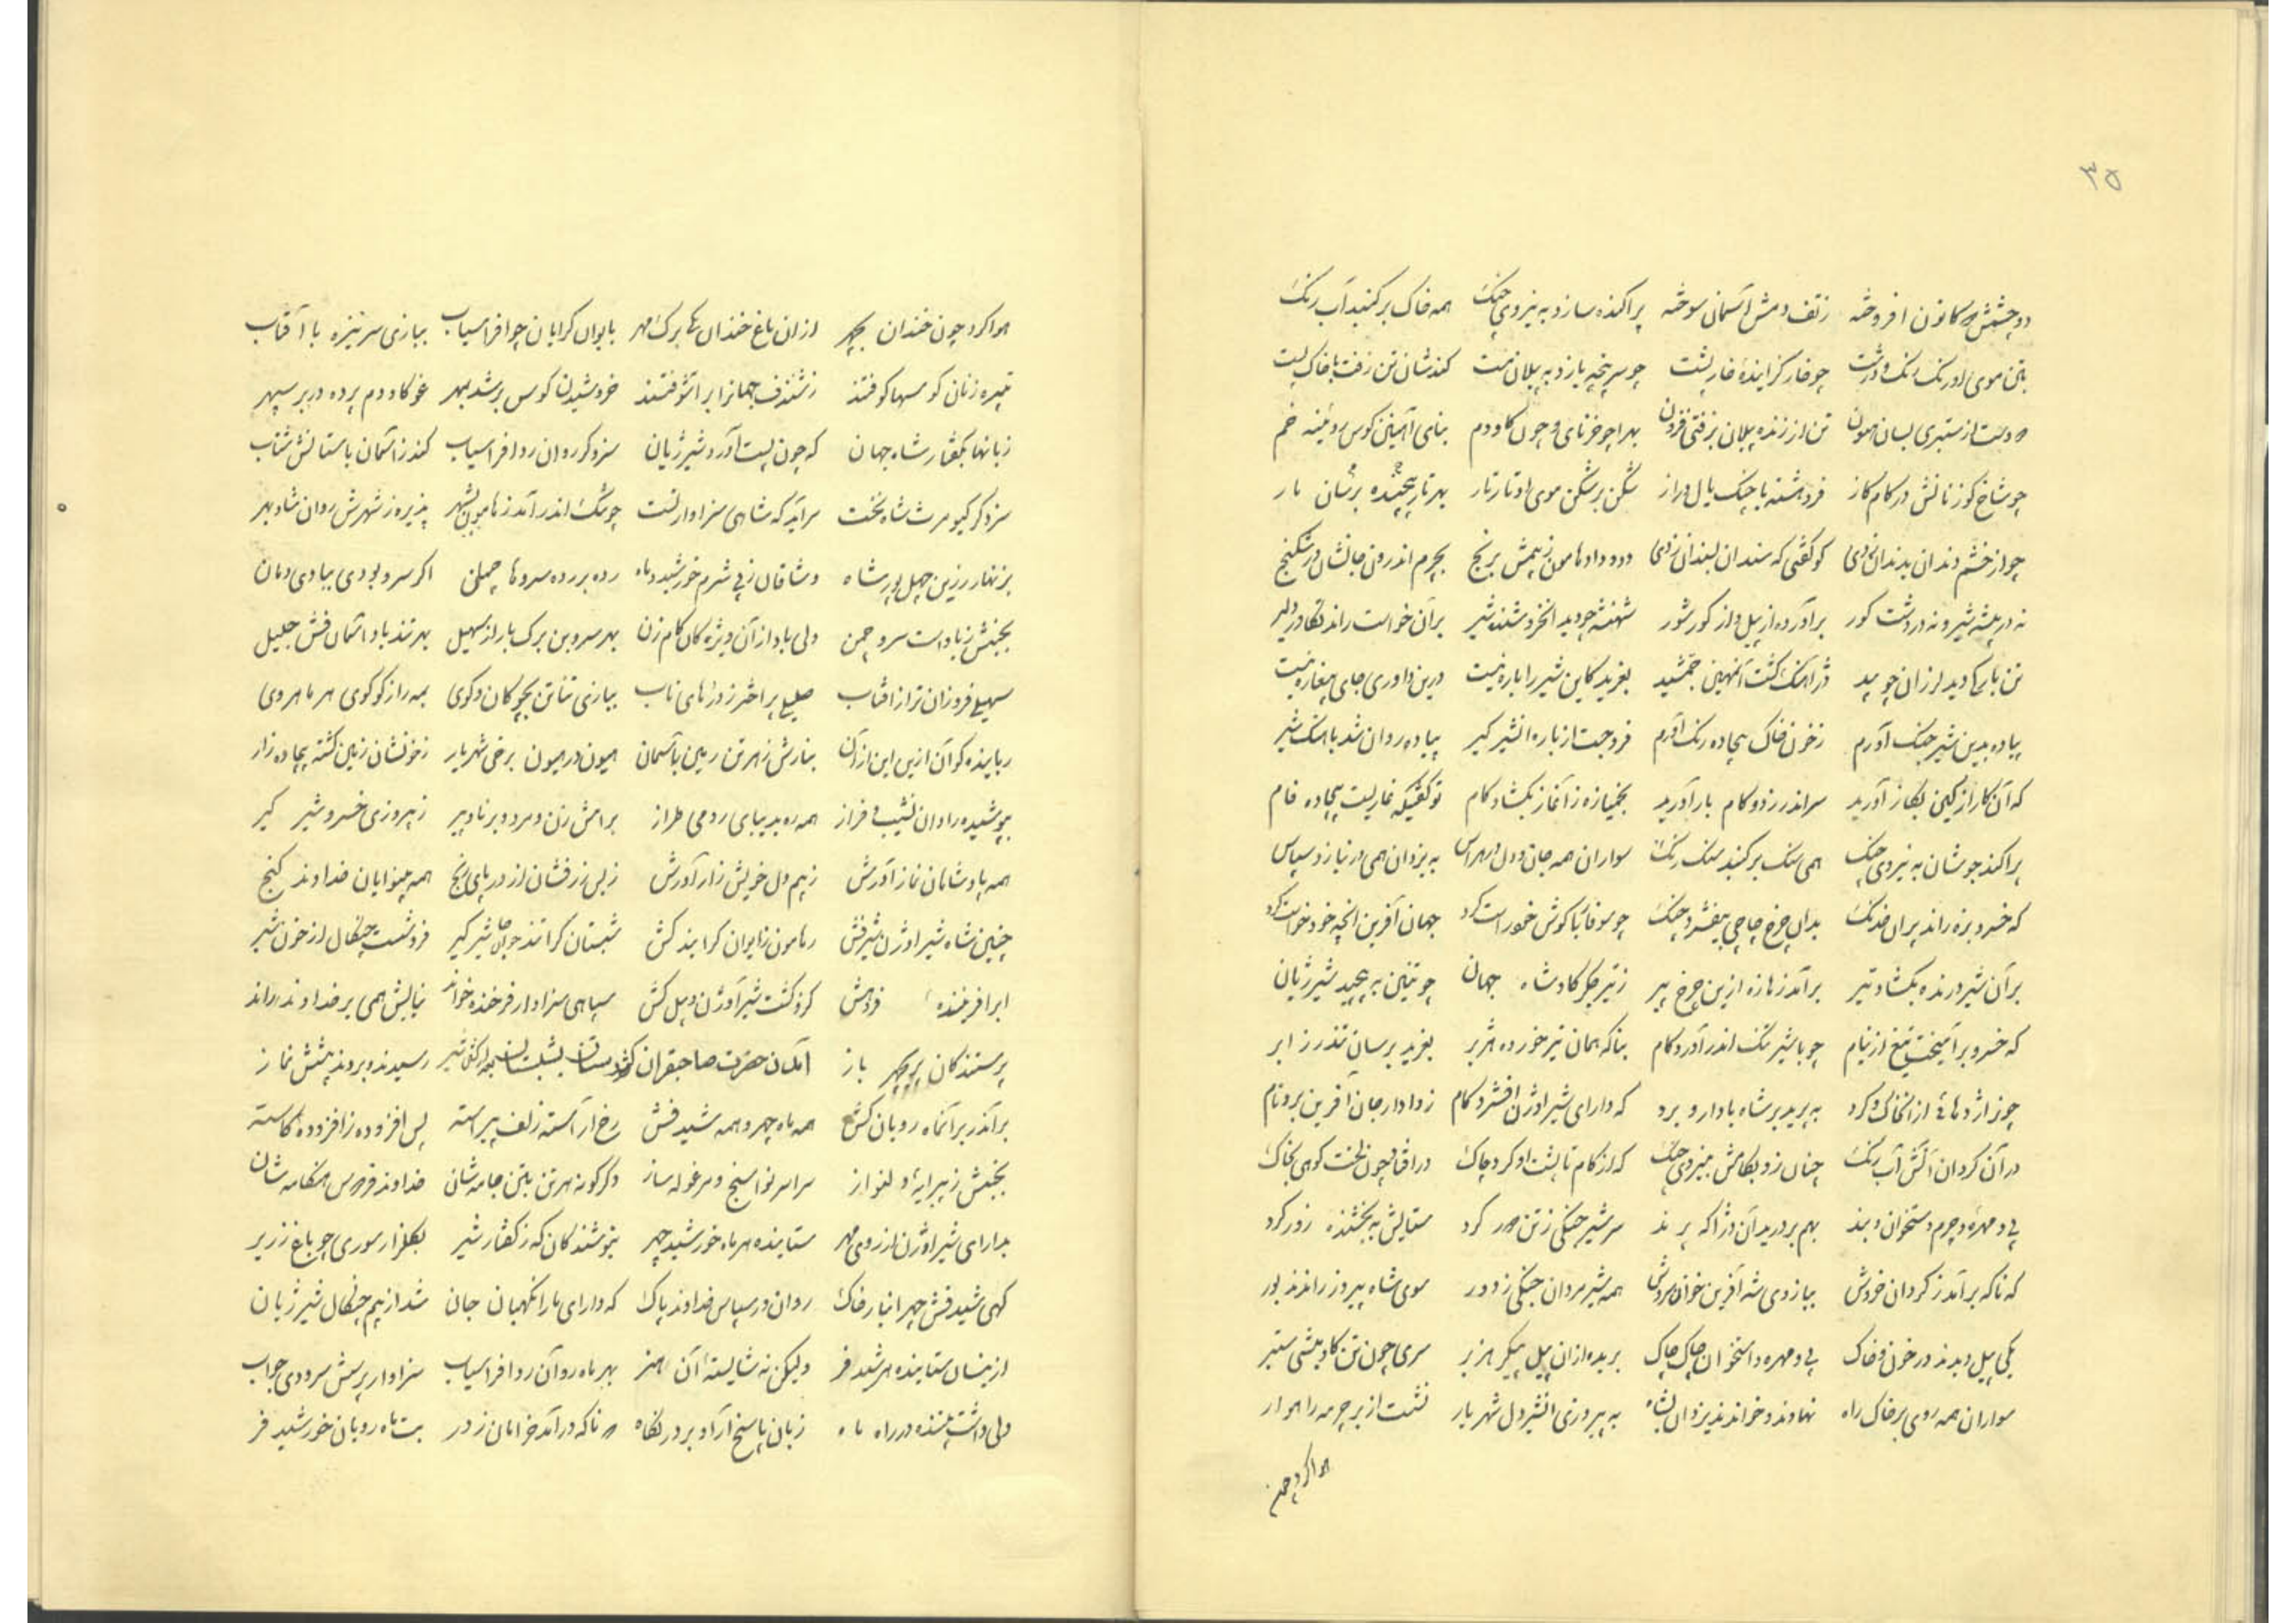 ۳۵
دو چشمش چو کانون افروخته ز تف دمش آسمان سوخته پراکنده سازد به نیروی چنک همه خاک بر کنبد آب رنک
بتن موی او رنک رنک و درشت چو خار کزاینده خارپشت چو سرپنجه یازد به پیلان مست کندشان تن زفت با خاک پست
دو دست از ستبری بسان هیون تن از زنده پیلان بزفتی فزون بهرا چو خرنای و چون کاودم بنای آهنین کوس روئینه خم
چو شاخ کوزنانش در کام کاز فروهشته با چنک یال دراز شکن بر شکن موی او تارتار بهر تار پیچنده برسان مار
چو از خشم دندان بدندان زدی تو کفتی که سندان بسندان زدی دد و دام هامون ز بیمش برنج بچرم اندرون جانشان در شکنج
نه در بیشه شیر و نه در دشت کور برآورده از پیل و از کور شور شهنشه چو دید آنخروشنده شیر بر آن خواست راند تکاور دلیر
تن بارکی دید لرزان چو بید دژآهنک کشت آنهمین جمشید بغرید کاین شیر را باره نیست درین داوری جای بیغاره نیست
پیاده بدین شیر جنک آورم ز خون خاک بیجاده رنک آورم فرو جست از باره آنشیر کیر پیاده روان شد باهنک شیر
که آن کار از کین بکار آورید سر اندر زد و کام بار آورید بخمیازه ز آغاز بکشاد کام تو کفتیکه غاریست بیجاده فام
پراکند جوشان به نیروی چنک همی سنک بر کنبد سنک رنک سواران همه جان و دل در هراس به یزدان همی در نیاز و سپاس
که خسرو بزه راند پران خدنک بدان چرخ چاچی بیفشرد چنک چو سوفار با کوش خود راست کرد جهان آفرین آنچه خود خواست کرد
بر آن شیر درنده بکشاد تیر برآمد ز هازه ازین چرخ پیر ز تیر جکر کاه شاه جهان چو تنین به پیچید شیر ژیان
که خسرو برآهیخت تیغ از نیام چو با شیر تنک اندر آورد کام بناکه همان تیر خورده هژبر بغرید برسان تندر ز ابر
چو اژدهائی از آنخاک و کرد به پرید بر شاه با دار و برد که دارای شیر اوژن افشرد کام ز دادار جان آفرین برد نام
در آن کردان آتش آب رنک چنان زد بکامش به نیروی چنک که از کام تا پشت او کرد چاک درافتاد چون لخت کوهی بخاک
پی و مهره و چرم و ستخوان و بند بهم بردرید آن دژاکه پرند سر شیر جنکی ز تن دور کرد ستایش به بخشنده زور کرد
که ناکه برآمد ز کردان خروش ببازوی شه آفرین خوان سروش همه شیرمردان جنکی ز دور سوی شاه پیروز راندند بور
یکی پیل دیدند در خون و خاک پی و مهره و استخوان چاک چاک بریده از آن پیل پیکر هزبر سری چون تن کاومیشی ستبر
سواران همه روی بر خاک راه نهادند و خواندند یزدان پناه به پیروزی آنشیردل شهریار نشست از بر چرمه راهوار
هوا کرد چون
هوا کرد چون خندان بچهر از ان باغ خندان یکی برک مهر بایوان کرایان چو افراسیاب ببازی سر نیزه با آفتاب
تبیره زنان کوسها کوفتند ز شندف جهانرا برآشوفتند خروشیدن کوس بر شد بمهر غو کاودم پرده در بر سپهر
زبانها بکفتار شاه جهان که چون پست آورد شیر ژیان سزد کر روان رد افراسیاب کند ز آسمان با ستایش شتاب
سزد کر کیومرث شاه نخست سراید که شاهی سزاوار تست چو تنک اندر آمد ز هامون بشهر پذیره ز شهرش روان شاد بهر
بزنهار زرین چهل پور شاه وشاقان ز پی شرم خورشید و ماه رده بر رده سروها چمان اکر سرو بودی ببادی دمان
بجنبش ز باد است سرو چمن ولی باد از آن ویژه کان کام زن بهر سرو بن برک بار از سهیل بهر تند باد آسمان فش جلیل
سهیلی فروزان تر از آفتاب صلیبی پر اختر ز درهای ناب ببازی تناتن بچوکان و کوی همه راز کو کوی هر ماهروی
رباینده کو آن ازین این از آن بنازش ز هر تن زمین بآسمان هیون در هیون برخی شهریار ز خونشان زمین کشته بیجاده زار
بپوشیده راه از نشیب و فراز همه ره بدیبای رومی طراز برامش زن و مرد و برنا و پیر ز پیروزی خسرو شیر کیر
همه پادشاهان نماز آورش ز بیم دل خویش زار آورش ز بس زر فشان از در پای رنج همه بینوایان خداوند کنج
چنین شاه شیر اوژن شیرفش ز هامون زایوان کرایند کش شبستان کرائند جویای شیر کیر فرو شست چنکال از خون شیر
ابر آفریننده فروهش کزو کشت شیر اوژن و پیل کش سپاهی سزاوار فرخنده خواند نیایش همی بر خداوند راند
پرستندکان پریچهر باز آمدن حضرت صاحبقران رسیدند و بردند پیشش نماز
برآمد بر آنماه رویان کش همه ماه چهر و همه شید فش رخ آراسته زلف پیراسته پس افزوده ز افزوده کاسته
بجنبش ز پیرایه دلنواز سراسر نوا سنج و مرغوله ساز دکرکونه هر تن بتن جامه شان خداوند فردوس هنکامه شان
بدارای شیر اوژن از روی مهر ستاینده هر ماه خورشید چهر نیوشندکان که ز کفتار شیر بکلزار سوری چو باغ زریر
کهی شید فش چهر انبار خاک روان در سپاس خداوند پاک که دارای ما را نکهبان جان شد از بیم چنکال شیر ژیان
ازینسان ستاینده هر شید فر ولیکن نه شایسته آن هنر بهر ماه رو آن رد افراسیاب سزاوار پرسش سرودی جواب
ولی داشت پسنده در راه ماه زبان پاسخ آرا و بر در نکاه که ناکه درآمد خرامان ز در بت ماه رویان خورشید فر